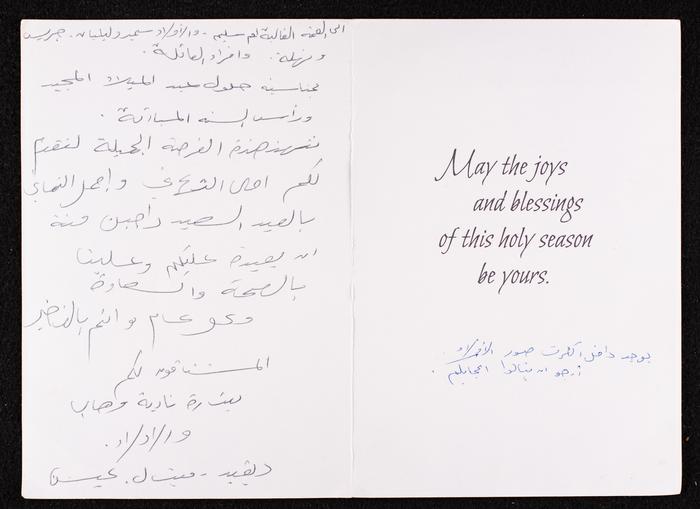 الى العمة الغالية ام سليم - والأولاد سمير وليليان - جريس
ونهلة . وافراد العائلة .
بمناسبة حلول عيد الميلاد المجيد
ورأس السنة المباركة .
ننتهز هذه الفرصة الجميلة لنقدم
لكم احلى التهاني واجمل التهاني
بالعيد السعيد راجين منه
ان يعيده عليكم وعلينا
بالصحة والسعادة
وكل عام وانتم بالخير
المشتاقون لكم
بشارة نادية وهاب
والاولاد .
ديفيد - ميشال .
May the joys
and blessings
of this holy season
be yours.
يوجد داخل الكرت صور الأولاد
ارجو ان ينالوا اعجابكم .